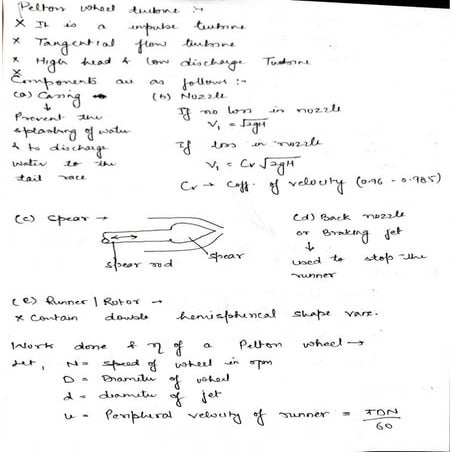 Pelton wheel turbine :→
* It is a impulse turbine
* Tangential flow turbine
* High head & low discharge Turbine
* Components are as follows :-
(a) Casing →
Prevent the
splashing of water
& to discharge
water to the
tail race
(b) Nozzle
If no loss in nozzle
V₁ = √2gH
If loss in nozzle
V₁ = Cv √2gH
Cv → Coff. of velocity (0.96 - 0.985)
(c) Spear →
spear rod
spear
(d) Back nozzle
or Braking jet
↓
used to stop the
runner
(e) Runner / Rotor →
* Contain double hemispherical shape vane.
Work done & η of a Pelton wheel →
Let, N = speed of wheel in rpm
D = Diameter of wheel
d = diameter of jet
u = Peripheral velocity of runner = πDN/60